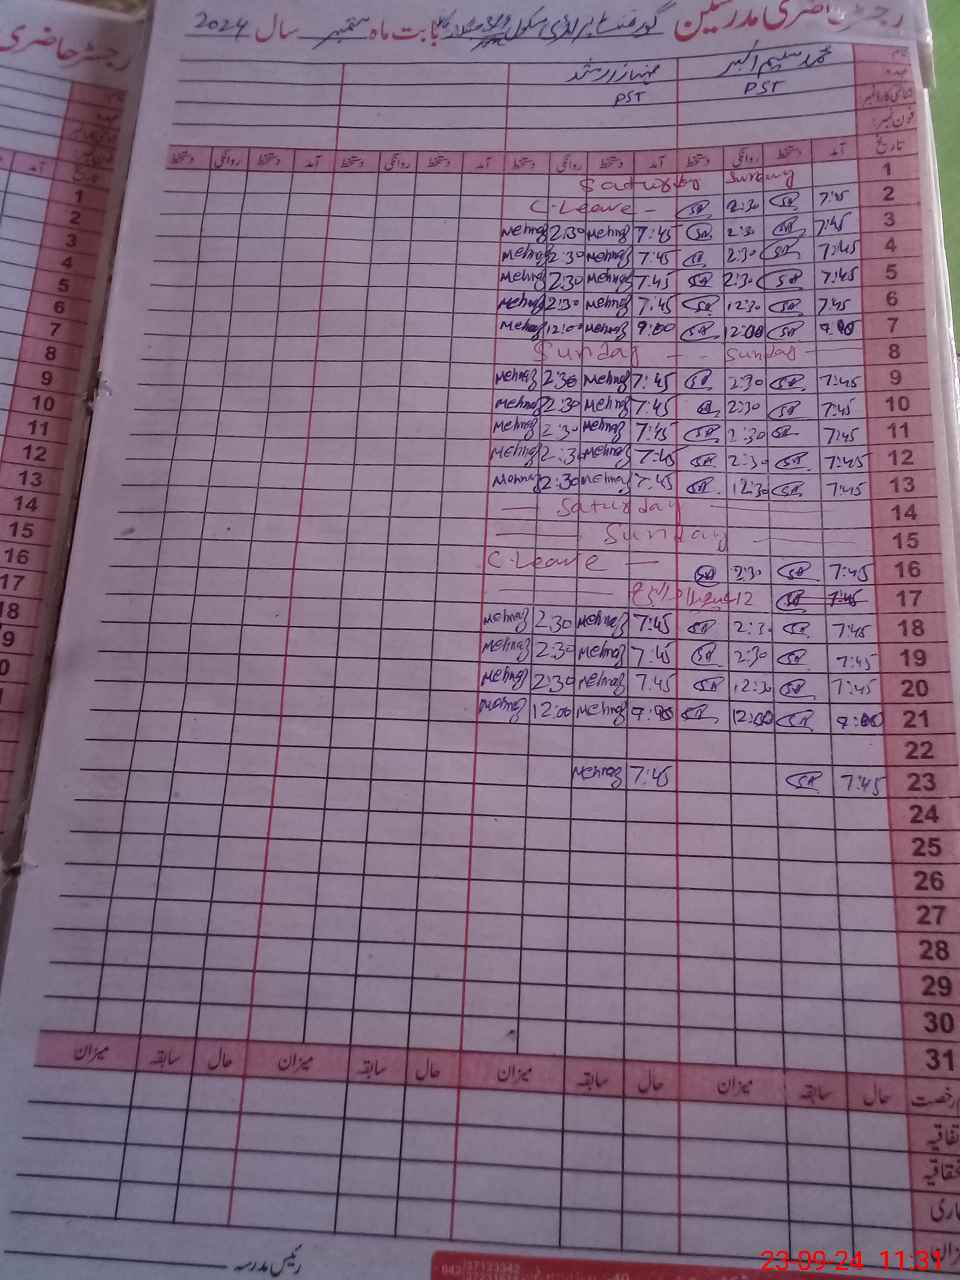 رجسٹر حاضری مدرسین گورنمنٹ پرائمری سکول بابت ماہ ستمبر سال 2024
رجسٹر حاضری
محمد سلیم اکبر
PST PST
فون نمبر:
تاریخ آمد دستخط روانگی دستخط آمد دستخط روانگی دستخط آمد دستخط روانگی دستخط آمد دستخط روانگی دستخط
1 Sunday Saturday
2 7:45 SA 2:30 SA C.Leave -
3 7:45 SA 2:30 SA 7:45 Mehnaz 2:30 Mehnaz
4 7:45 SA 2:30 SA 7:45 Mehnaz 2:30 Mehnaz
5 7:45 SA 2:30 SA 7:45 Mehnaz 2:30 Mehnaz
6 7:45 SA 12:30 SA 7:45 Mehnaz 2:30 Mehnaz
7 9:00 SA 12:00 SA 9:00 Mehnaz 12:00 Mehnaz
8 Sunday - - Sunday
9 7:45 SA 2:30 SA 7:45 Mehnaz 2:30 Mehnaz
10 7:45 SA 2:30 SA 7:45 Mehnaz 2:30 Mehnaz
11 7:45 SA 2:30 SA 7:45 Mehnaz 2:30 Mehnaz
12 7:45 SA 2:30 SA 7:45 Mehnaz 2:30 Mehnaz
13 7:45 SA 12:30 SA 7:45 Mehnaz 2:30 Mehnaz
14 Saturday
15 Sunday
16 7:45 SA 2:30 SA C.Leave -
17 7:45 SA 12
18 7:45 SA 2:30 SA 7:45 Mehnaz 2:30 Mehnaz
19 7:45 SA 2:30 SA 7:45 Mehnaz 2:30 Mehnaz
20 7:45 SA 12:30 SA 7:45 Mehnaz 2:30 Mehnaz
21 9:00 SA 12:00 SA 9:00 Mehnaz 12:00 Mehnaz
22
23 7:45 SA 7:45 Mehnaz
24
25
26
27
28
29
30
31
رخصت حال سابقہ میزان حال سابقہ میزان حال سابقہ میزان حال سابقہ میزان
رئیس مدرسہ
23-09-24 11:31